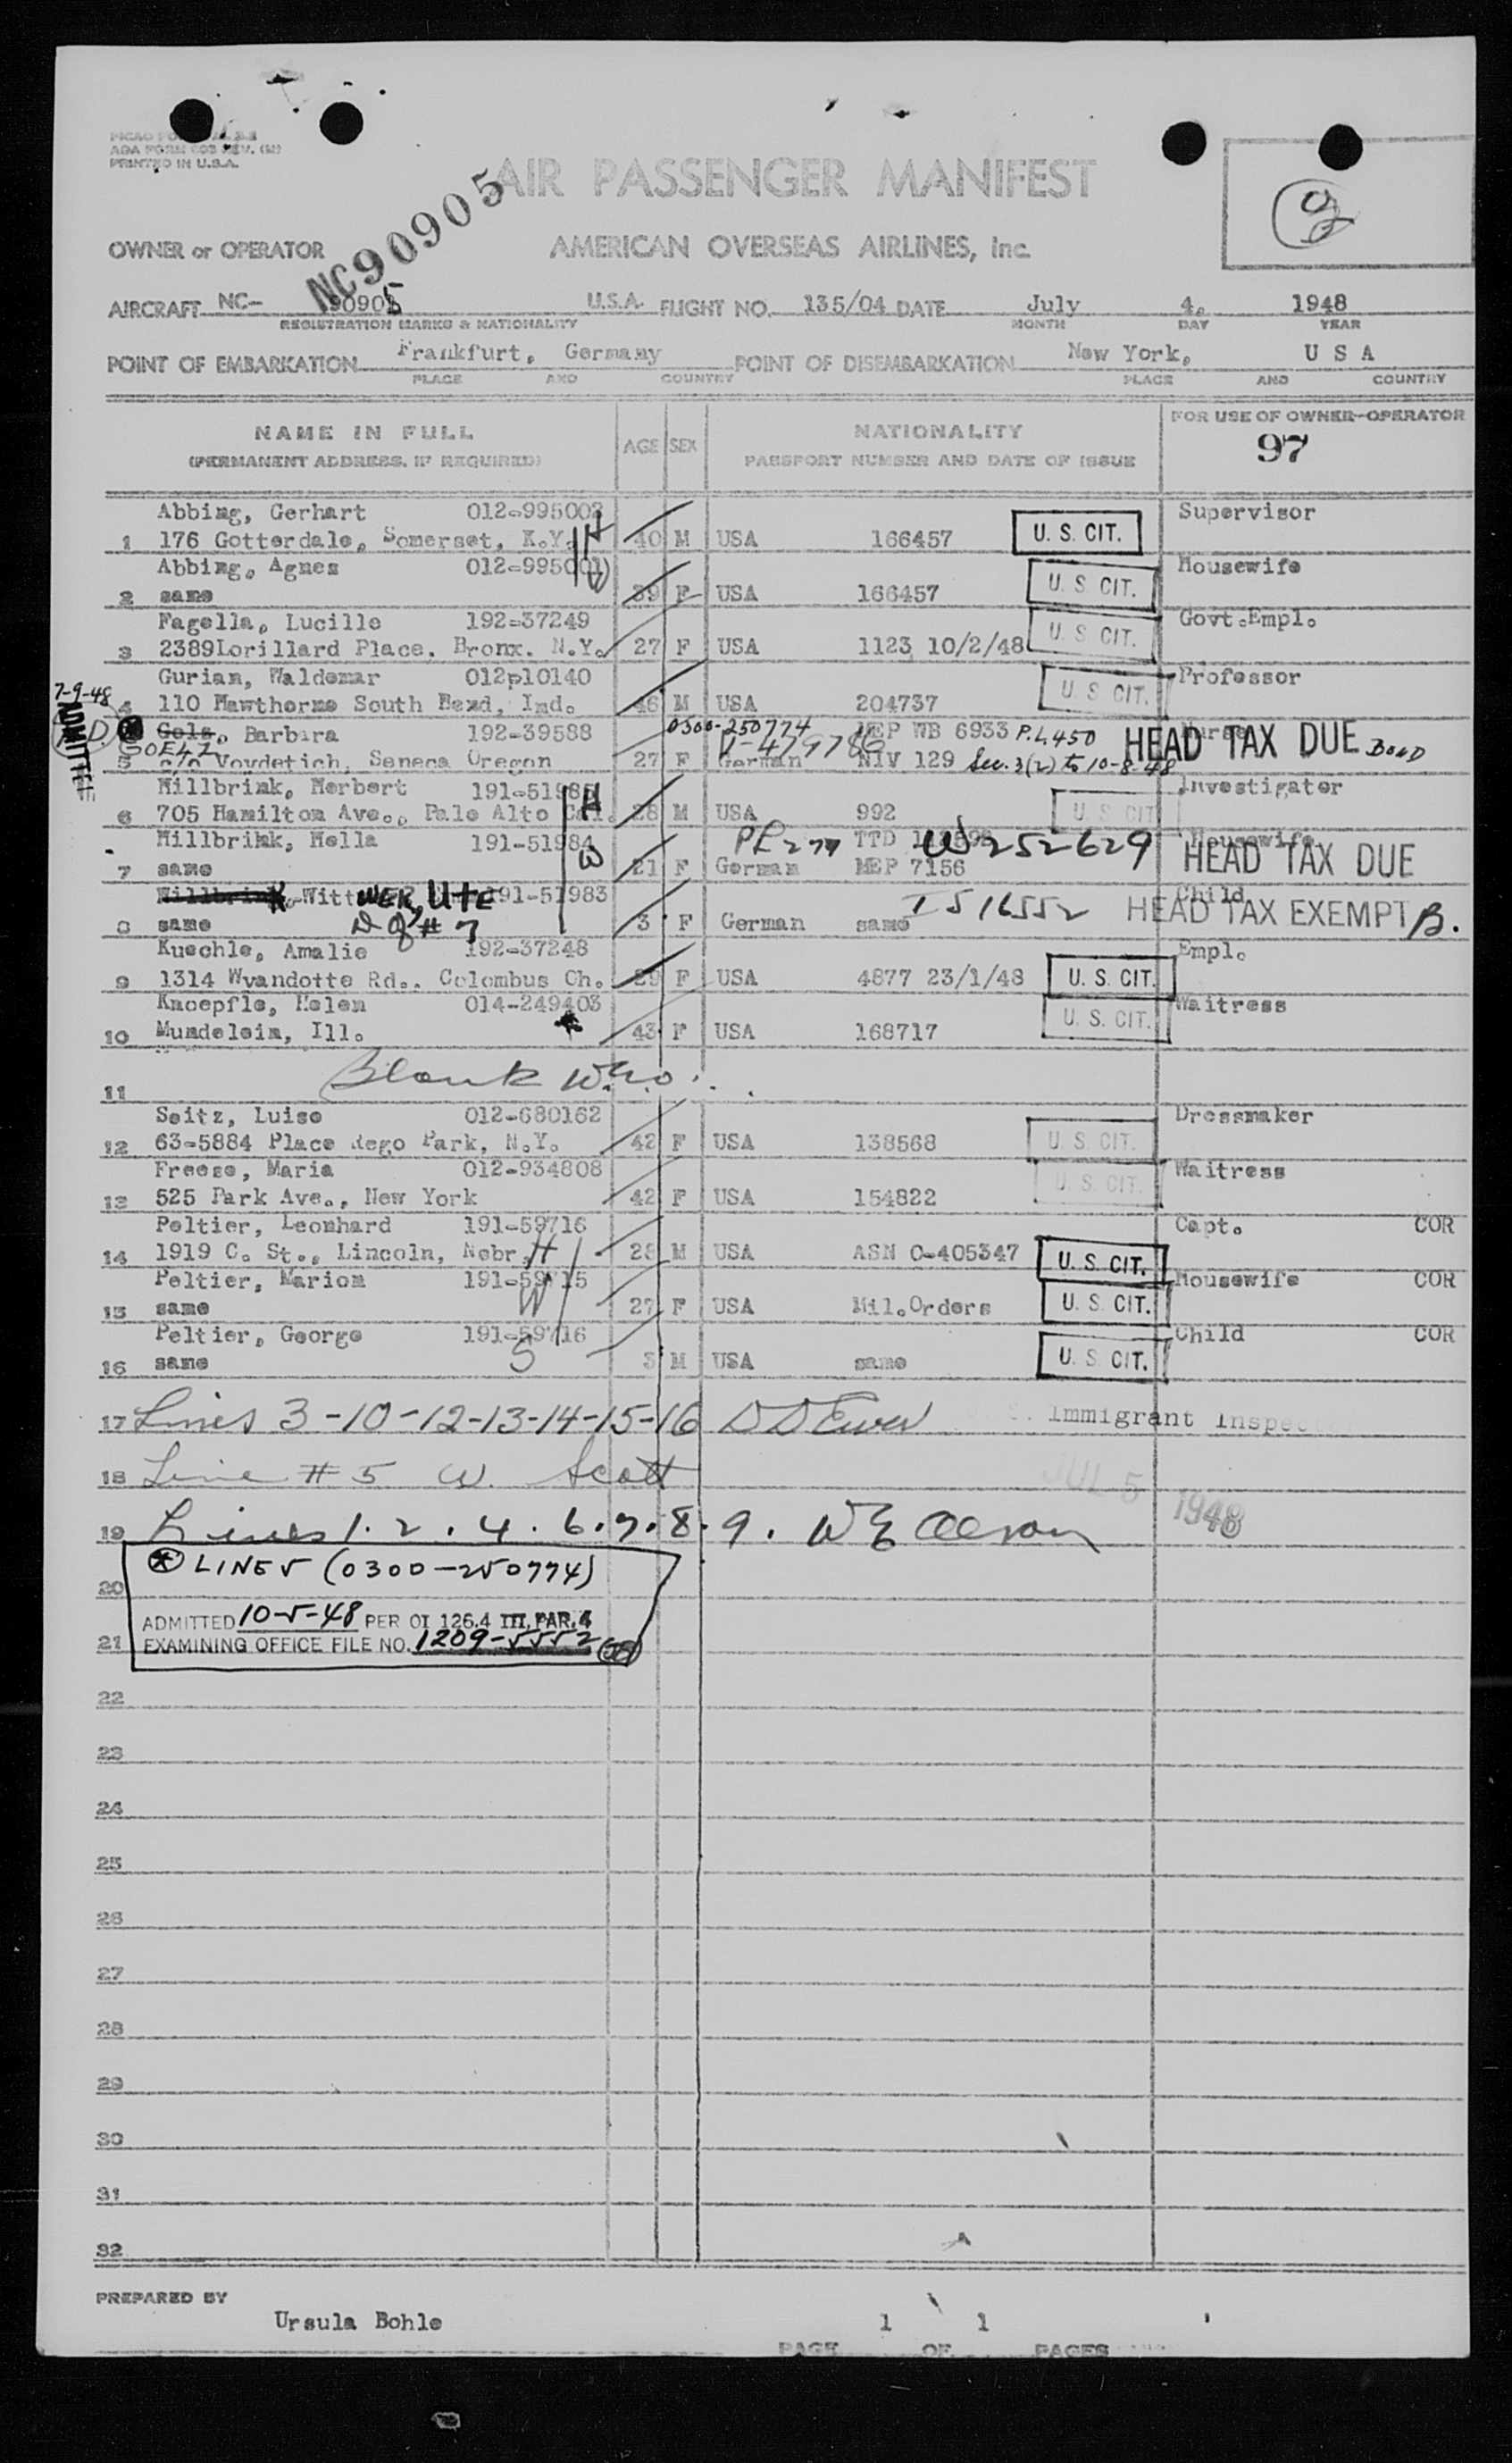 PRINTED IN U.S.A.
AIR PASSENGER MANIFEST
NC90905
OWNER or OPERATOR AMERICAN OVERSEAS AIRLINES, Inc.
AIRCRAFT NC- 90905 U.S.A. FLIGHT NO. 135/04 DATE July 4, 1948
REGISTRATION MARKS & NATIONALITY MONTH DAY YEAR
POINT OF EMBARKATION Frankfurt, Germany POINT OF DISEMBARKATION New York, U S A
PLACE AND COUNTRY PLACE AND COUNTRY
NAME IN FULL AGE SEX NATIONALITY FOR USE OF OWNER-OPERATOR
(PERMANENT ADDRESS, IF REQUIRED) PASSPORT NUMBER AND DATE OF ISSUE 97
Abbing, Gerhart 012-995002 H Supervisor
1 176 Gotterdale, Somerset, K.Y. 40 M USA 166457 U. S. CIT.
Abbing, Agnes 012-995001 W Housewife
2 same 39 F USA 166457 U. S. CIT.
Fagella, Lucille 192-37249 Govt.Empl.
3 2389Lorillard Place, Bronx, N.Y. 27 F USA 1123 10/2/48 U. S. CIT.
Gurian, Waldemar 012p10140 Professor
7-9-48 4 110 Hawthorne South Bend, Ind. 46 M USA 204737 U. S. CIT.
ADMITTED Gols, Barbara 192-39588 0300-250774 MEP WB 6933 P.L. 450 Nurse HEAD TAX DUE Bond
5 c/o Voydetich, Seneca Oregon 27 F German V-479786 NIV 129 Sec. 3(2) to 10-8-48
Hillbrink, Herbert 191-51985 H Investigator
6 705 Hamilton Ave., Palo Alto Cal. 28 M USA 992 U. S. CIT.
Hillbrink, Hella 191-51984 W TTD W252629 Housewife
7 same 21 F German MEP 7156 HEAD TAX DUE
WER, UTE 191-51983 Child
8 same D of # 7 3 F German same I516552 HEAD TAX EXEMPT B.
Kuechle, Amalie 192-37248 Empl.
9 1314 Wyandotte Rd., Colombus Oh. 29 F USA 4877 23/1/48 U. S. CIT.
Knoepfle, Helen 014-249403 Waitress
10 Mundelein, Ill. 43 F USA 168717 U. S. CIT.
11 Blank
Seitz, Luise 012-680162 Dressmaker
12 63-5884 Place Rego Park, N.Y. 42 F USA 138568 U. S. CIT.
Freese, Maria 012-934808 Waitress
13 525 Park Ave., New York 42 F USA 154822 U. S. CIT.
Peltier, Leonhard 191-59716 Capt. COR
14 1919 C. St., Lincoln, Nebr. H 28 M USA ASN O-405347 U. S. CIT.
Peltier, Marion 191-59715 Housewife COR
15 same W 27 F USA Mil.Orders U. S. CIT.
Peltier, George 191-59716 Child COR
16 same S 3 M USA same U. S. CIT.
17 Lines 3-10-12-13-14-15-16 Immigrant Inspector
18 Line # 5 W. Scott JUL 5 1948
19 Lines 1. 2. 4. 6. 7. 8. 9.
LINE 5 (0300-250774)
20
ADMITTED 10-5-48 PER OI 126.4 III, PAR. 4
21 EXAMINING OFFICE FILE NO. 1209-5552
22
23
24
25
26
27
28
29
30
31
32
PREPARED BY
Ursula Bohle 1 1
PAGE OF PAGES